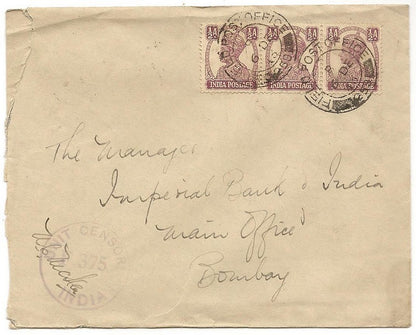 ½A ½A ½A
INDIA POSTAGE INDIA POSTAGE INDIA POSTAGE
FIELD POST OFFICE
FIELD POST OFFICE
The Manager
Imperial Bank of India
Main Office
Bombay
UNIT CENSOR
INDIA